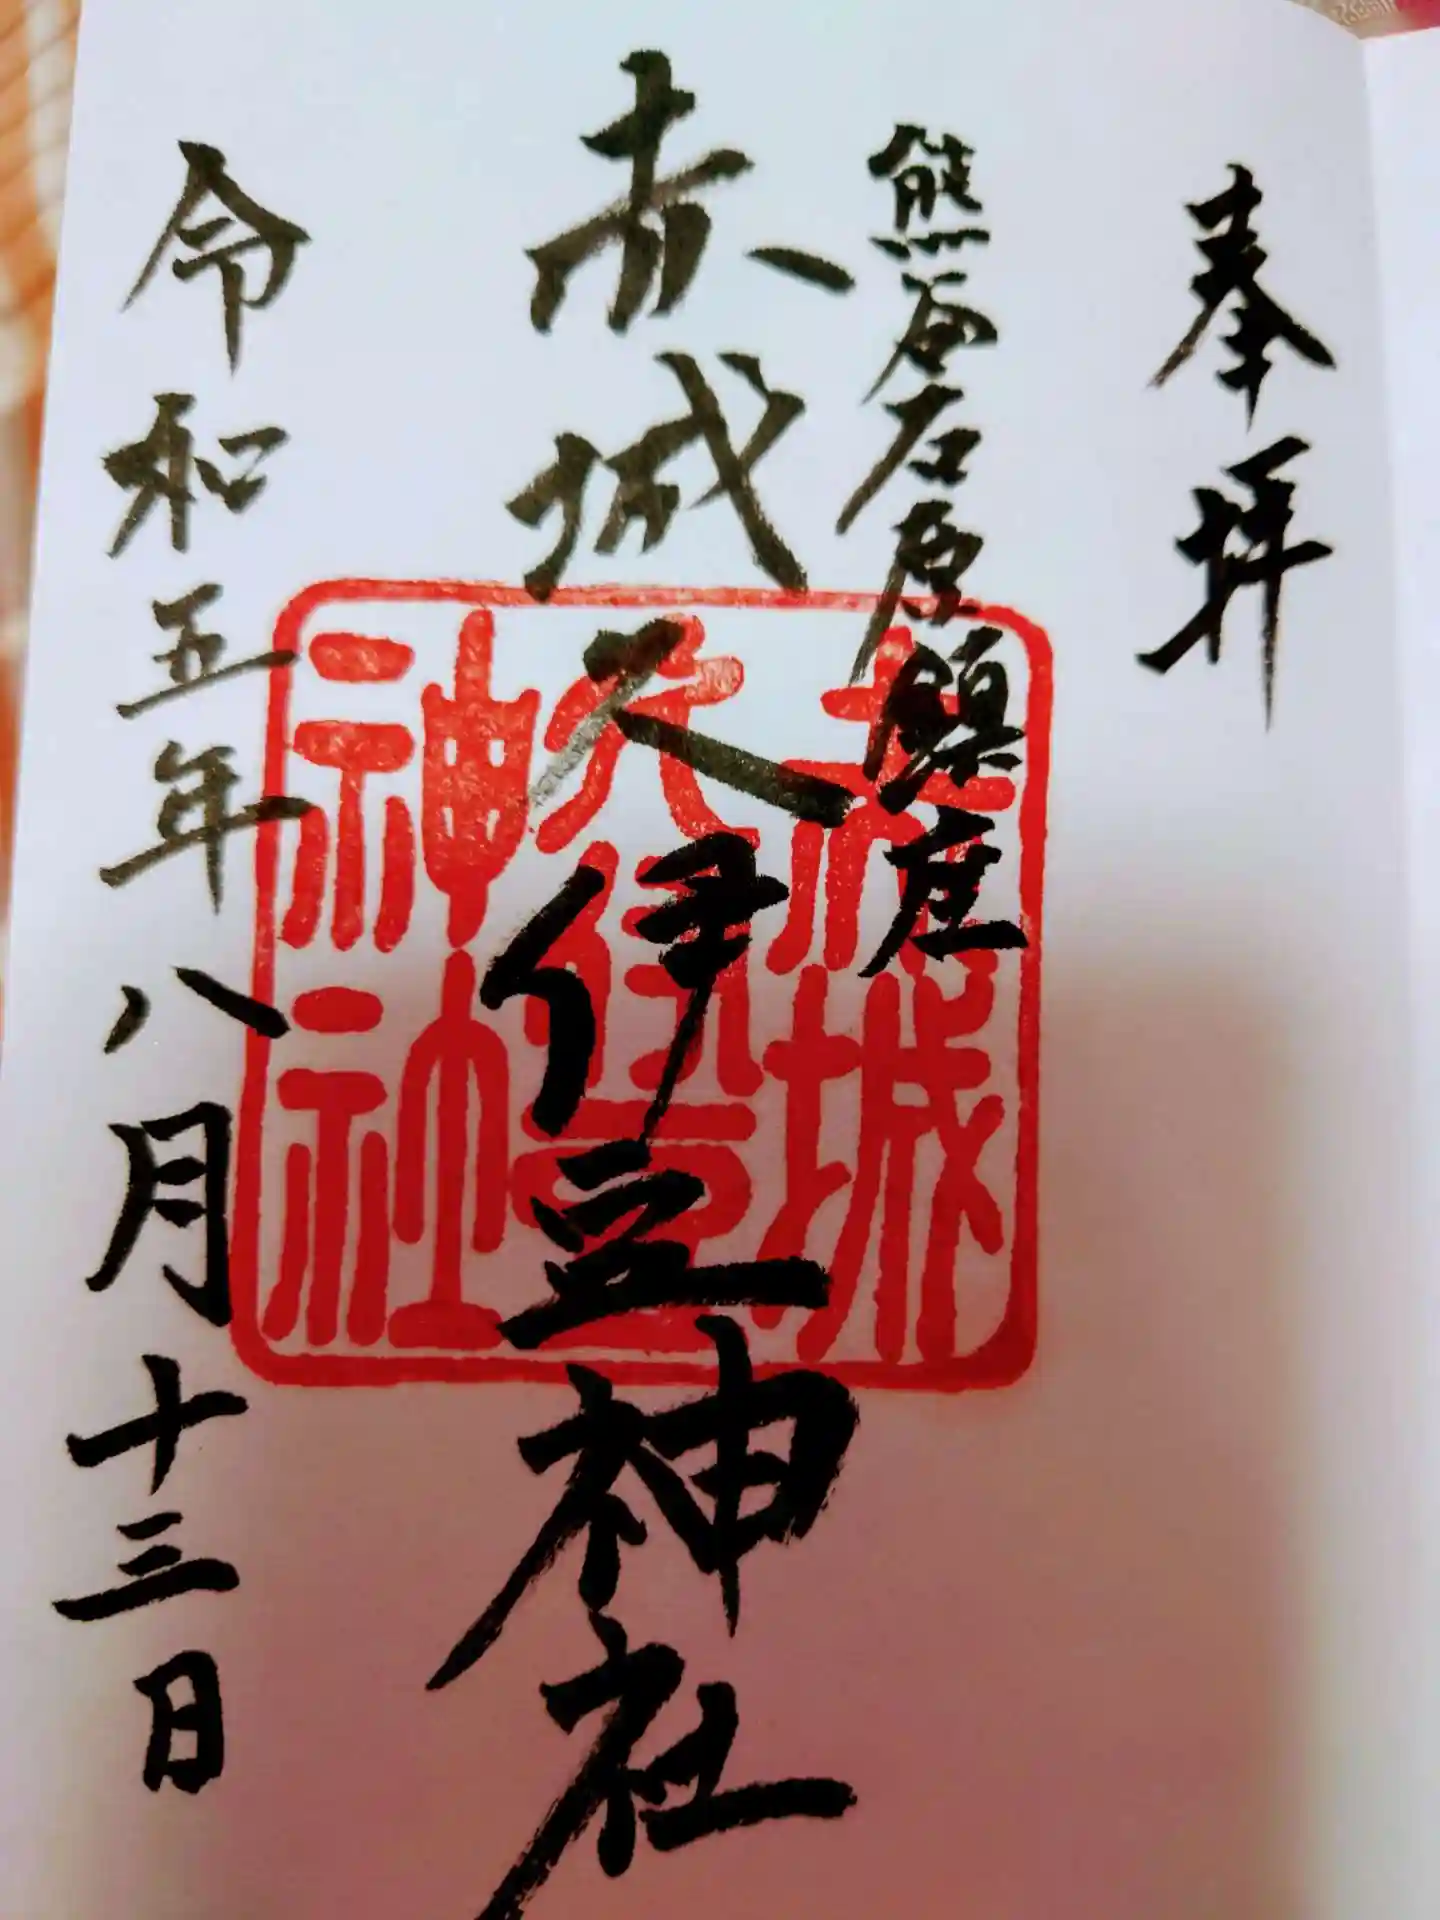 奉拝
熊谷石原鎮座
赤城久伊豆神社
赤城
久伊豆
神社
令和五年八月十三日